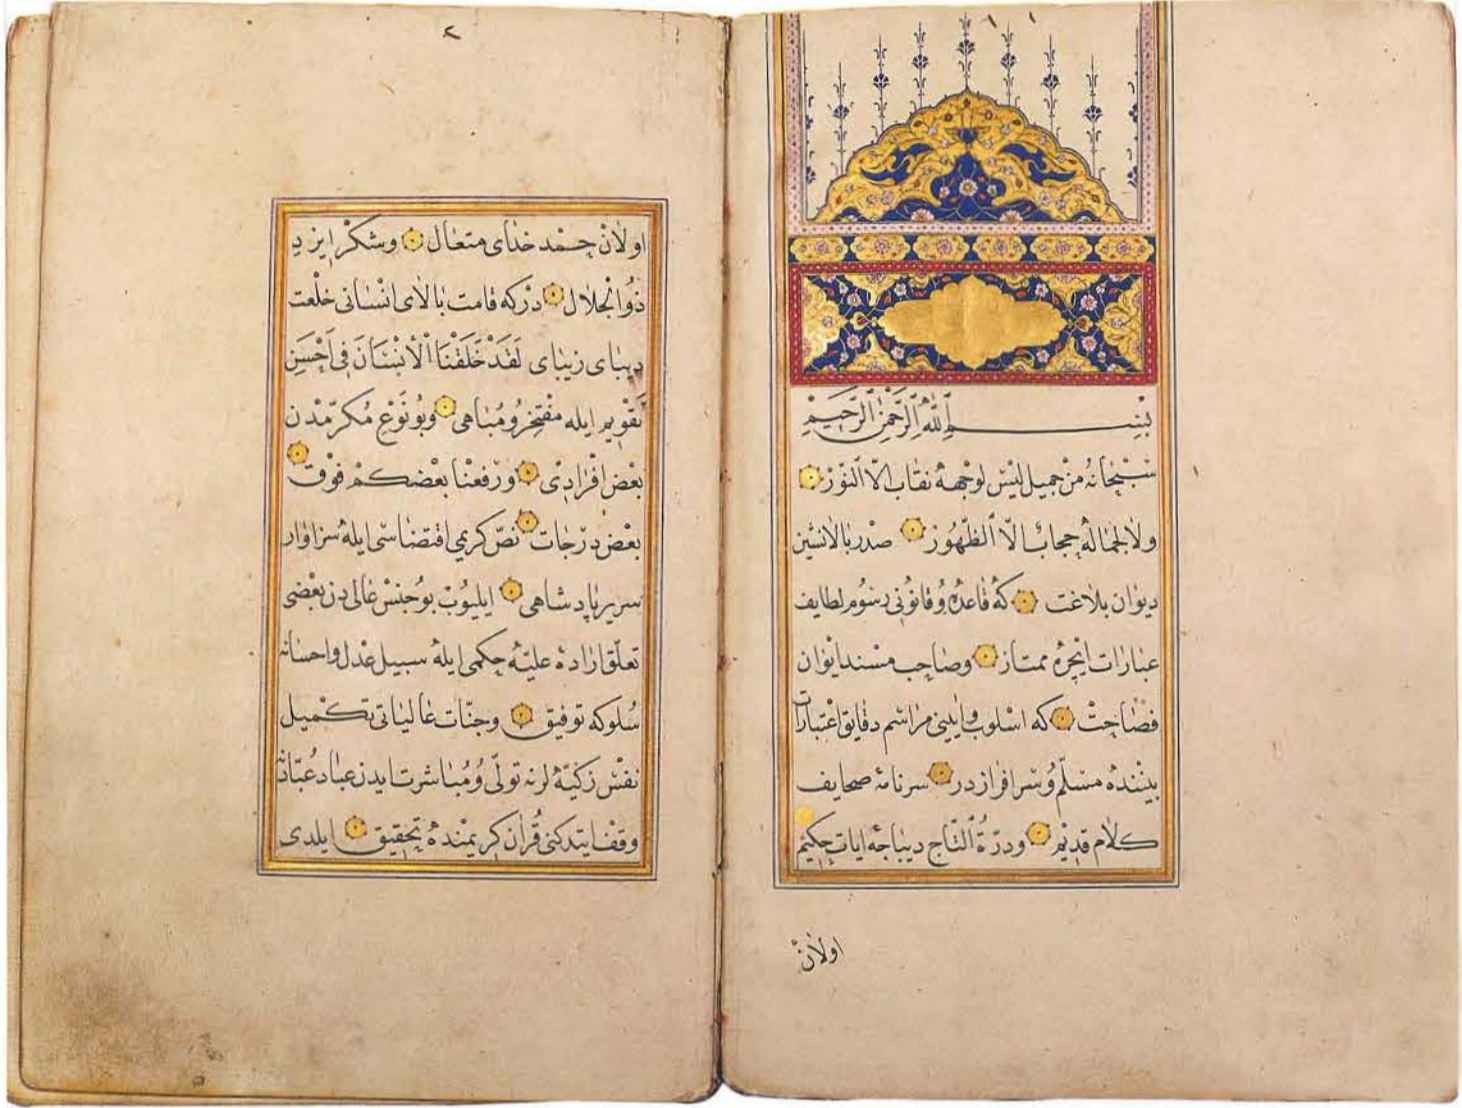 بسم الله الرحمن الرحيم
سبحانه من جميل ليس لوجهه نقاب الا النور
ولا لجماله حجاب الا الظهور صدر بالانشين
ديوان بلاغت كه قاعده و قانونى رسوم لطايف
عبارات ايچره ممتاز وصاحب مسند ايوان
فصاحت كه اسلوب وايينى مراسم دقايق اعتبارات
بيننده مسلم و سرافراز در سرنامهٔ صحايف
كلام قديم ودرة التاج ديباجه ايات حكيم
اولان
٢
اولان حمد خداى متعال وشكر ايزد
ذو الجلال دركه قامت بالاى انسانى خلعت
ديباى زيباى لقد خلقنا الانسان فى احسن
تقويم ايله مفتخر و مباهى وبو نوع مكرمدن
بعض افرادى ورفعنا بعضكم فوق
بعض درجات نص كريمى اقتضاسى ايله سزاوار
سرير پادشاهى ايليوب بو جنس عالى دن بعضى
تعلق ارادهٔ عليه حكمى ايله سبيل عدل واحسانه
سلوكه توفيق وجنات عالياتى تكميل
نفس زكيه لرنه تولى و مباشرت ايدن عباد عباد
وقف ايتدكنى قران كريمنده تحقيق ايلدى